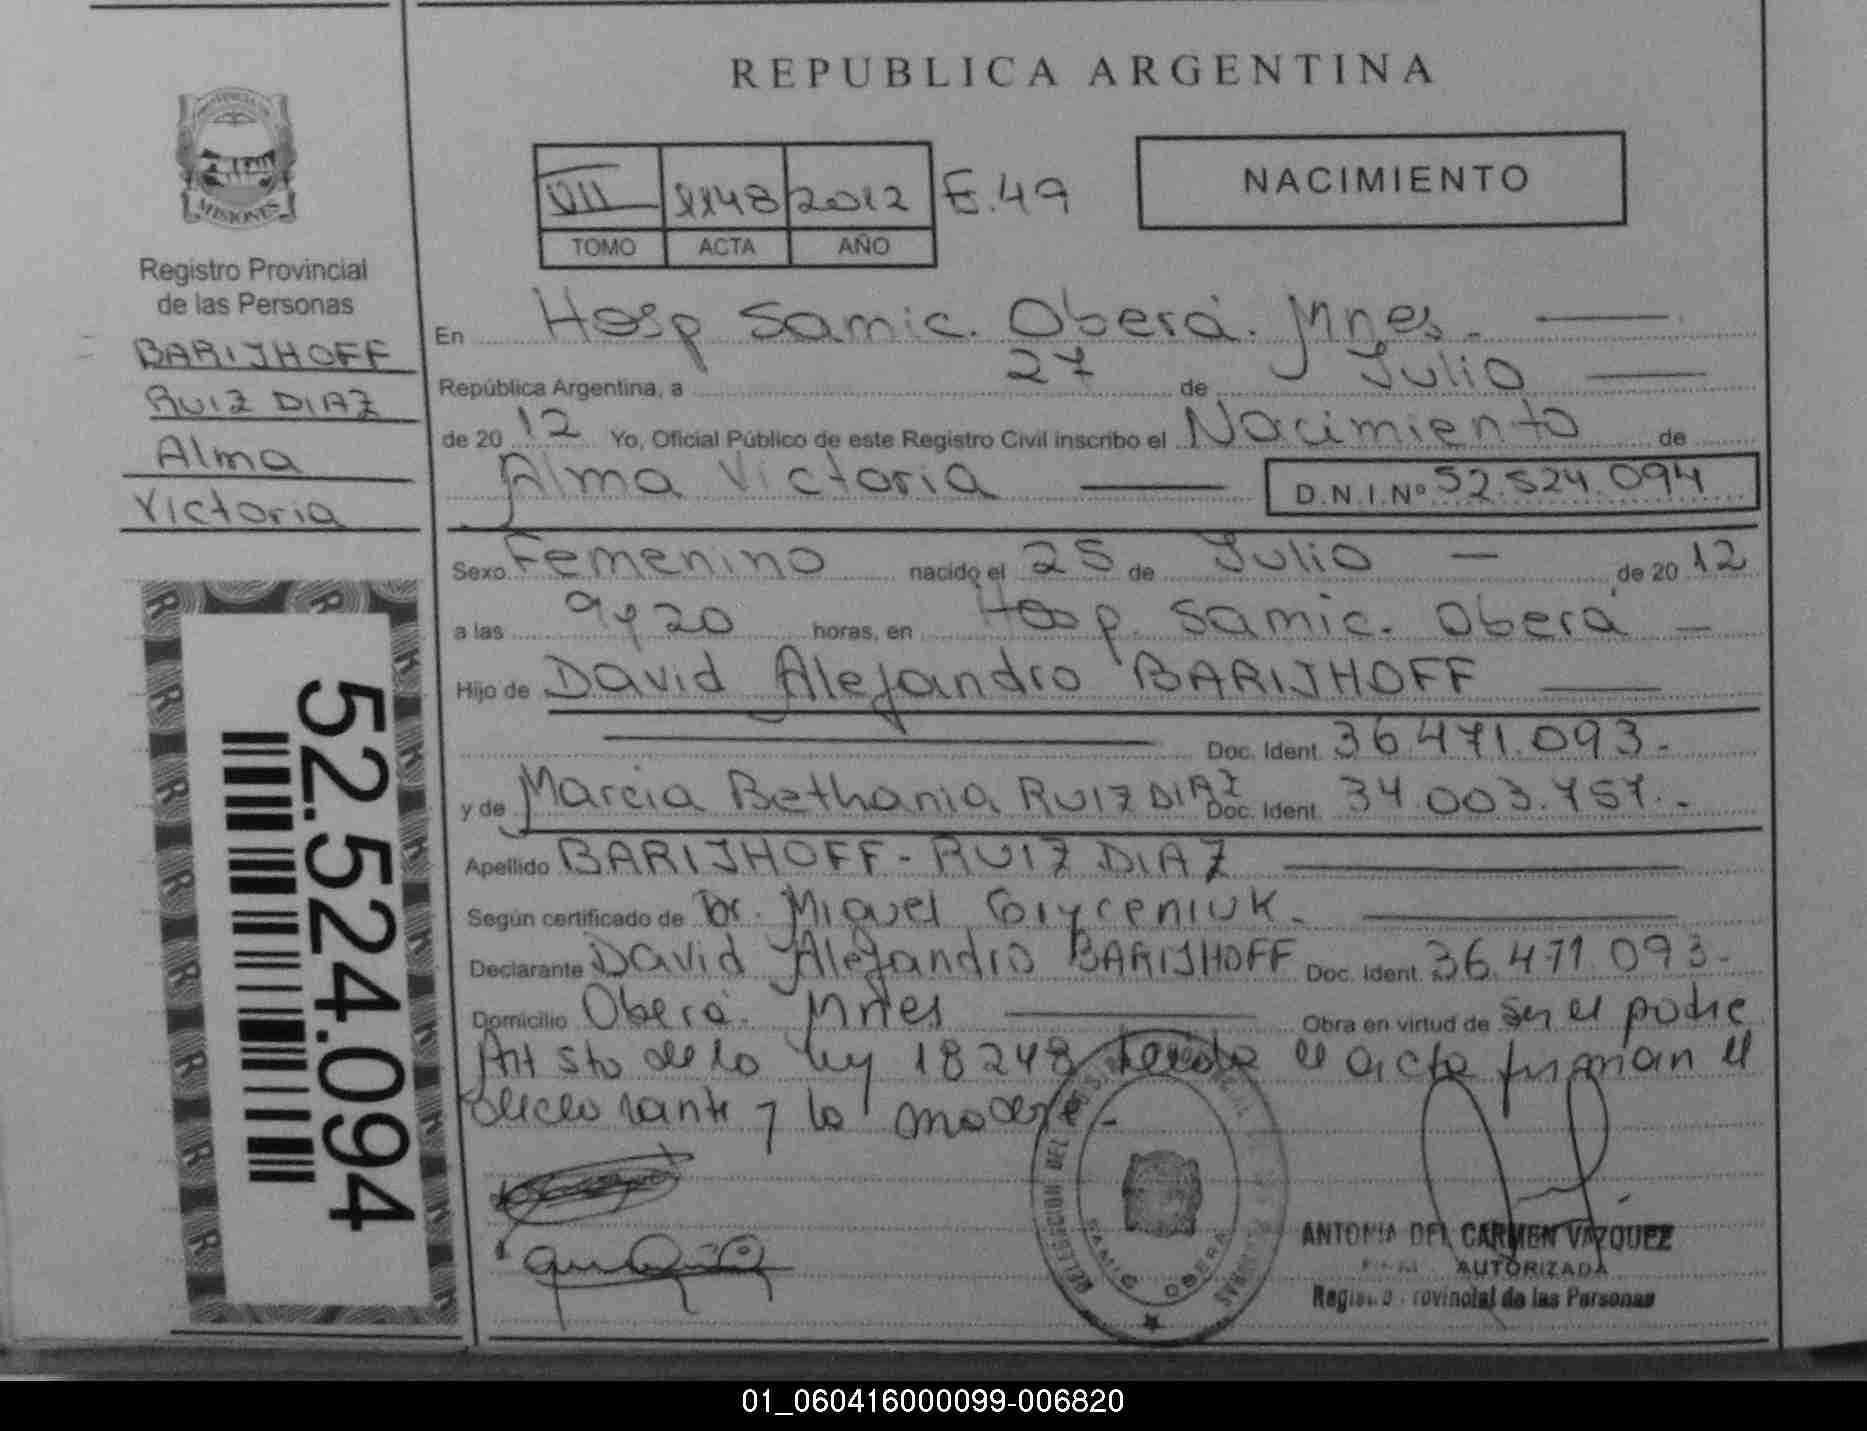 REPUBLICA ARGENTINA
PROVINCIA DE
MISIONES
Registro Provincial
de las Personas
BARIJHOFF
RUIZ DIAZ
Alma
Victoria
52.524.094
VII 1148 2012 E.49
TOMO ACTA AÑO
NACIMIENTO
En Hosp Samic. Oberá. Mnes.
República Argentina, a 27 de Julio
de 2012 Yo, Oficial Público de este Registro Civil inscribo el Nacimiento de
Alma Victoria D.N.I.Nº 52.524.094
Sexo Femenino nacido el 25 de Julio de 2012
a las 9 y 20 horas, en Hosp. Samic. Oberá
Hijo de David Alejandro BARIJHOFF
Doc. Ident. 36.471.093.
y de Marcia Bethania RUIZ DIAZ Doc. Ident. 34.003.757.
Apellido BARIJHOFF - RUIZ DIAZ
Según certificado de Dr. Miguel
Declarante David Alejandro BARIJHOFF Doc. Ident. 36.471.093.
Domicilio Oberá. Mnes Obra en virtud de ser el padre
Art 5to de la ley 18248 el acta firman el
declarante y la madre.
SAMIC OBERA
ANTONIA DEL CARMEN VAZQUEZ
AUTORIZADA
Registro Provincial de las Personas
01_060416000099-006820